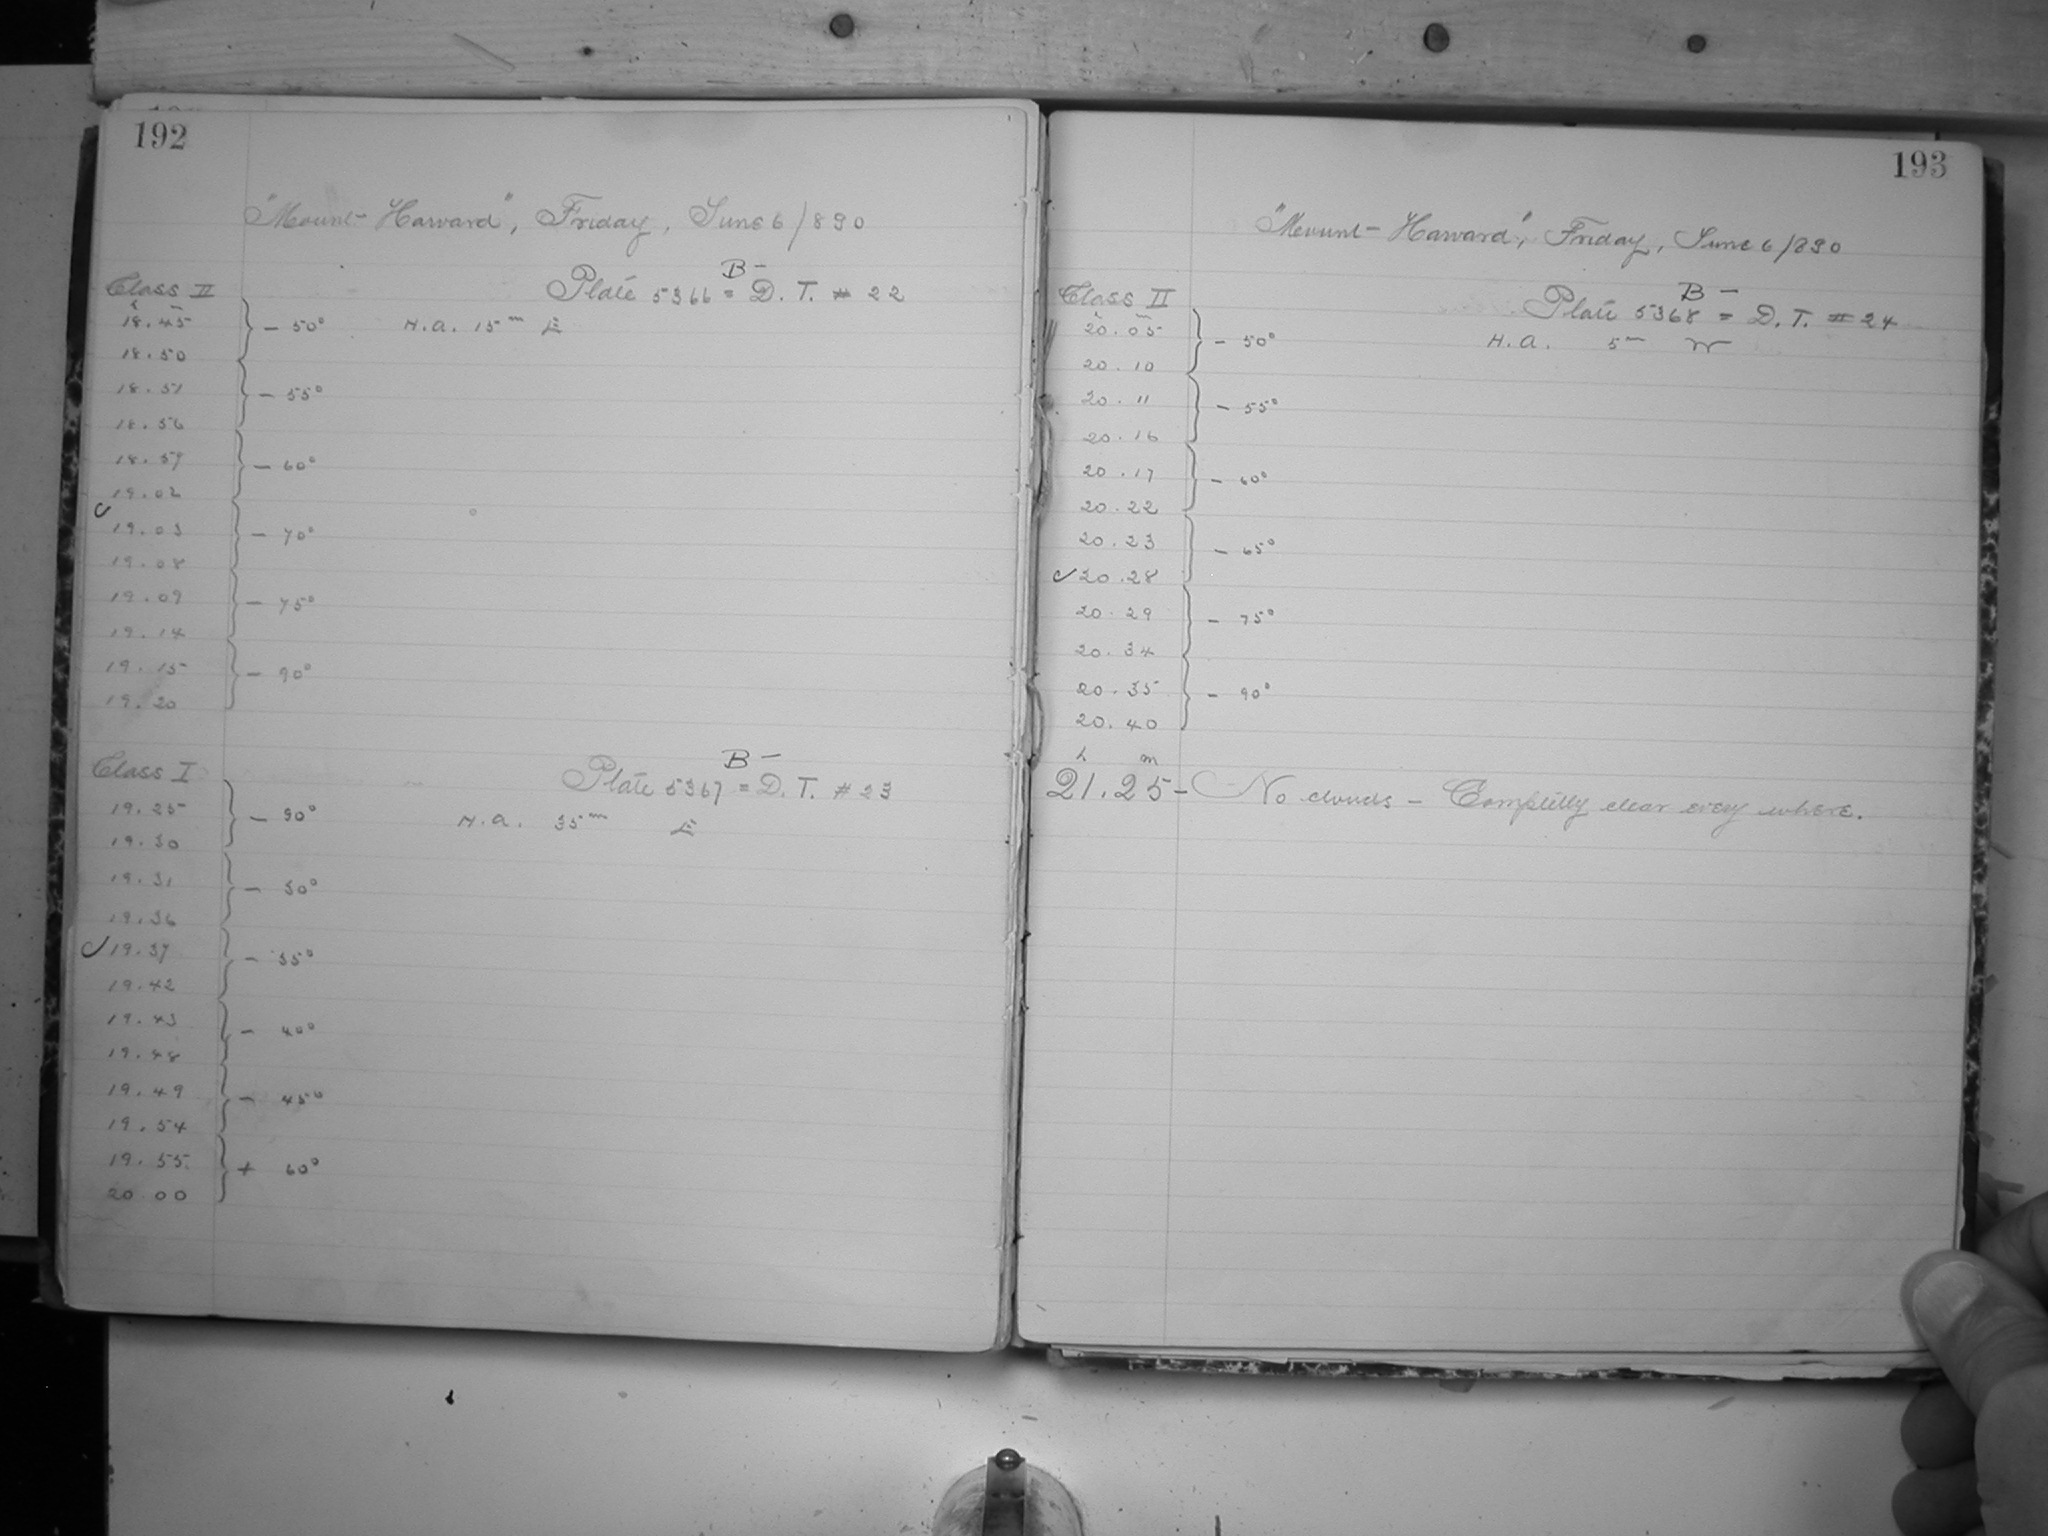 192
"Mount-Harvard", Friday, June 6/890
Class II
B-
Plate 5366 = D. T. # 22
h m
18.45 } - 50° H.A. 15m E
18.50
18.51 } - 55°
18.56
18.57 } - 60°
19.02
19.03 } - 70°
19.08
19.09 } - 75°
19.14
19.15 } - 90°
19.20
Class I
B-
Plate 5367 = D. T. # 23
19.25 } - 90° H.A. 35m E
19.30
19.31 } - 30°
19.36
19.37 } - 35°
19.42
19.43 } - 40°
19.48
19.49 } - 45°
19.54
19.55 } + 60°
20.00
193
"Mount-Harvard", Friday, June 6/890
Class II
B-
Plate 5368 = D. T. # 24
h m
20.05 } - 50° H.A. 5m W
20.10
20.11 } - 55°
20.16
20.17 } - 60°
20.22
20.23 } - 65°
20.28
20.29 } - 75°
20.34
20.35 } - 90°
20.40
h m
21.25- No clouds - Completly clear every where.